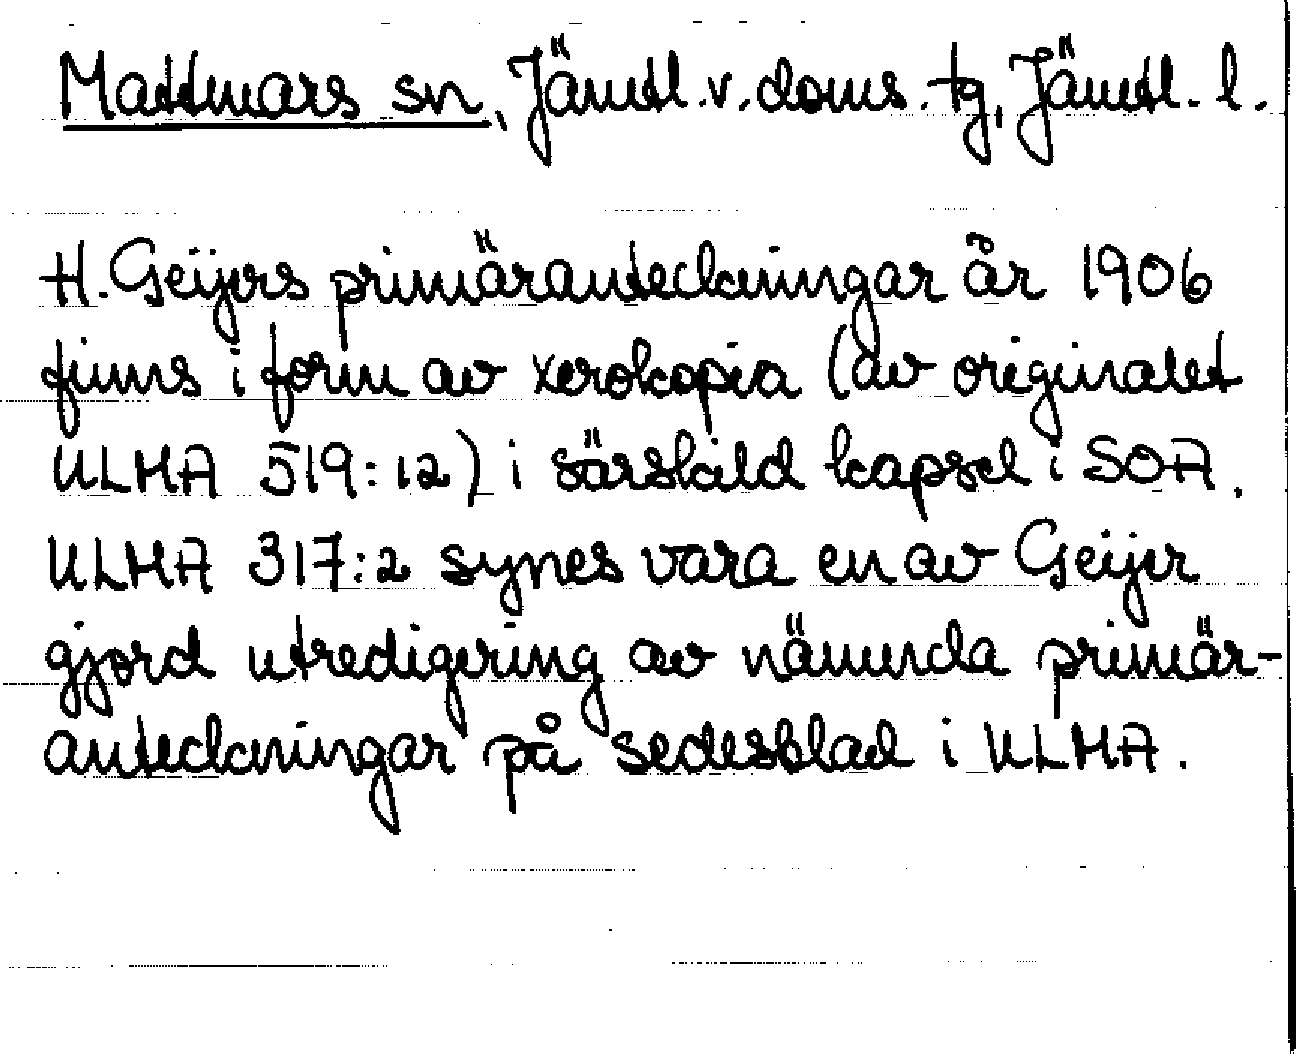 Mattmars sn, Jämtl. v. doms. tg, Jämtl. l.
H. Geijers primäranteckningar år 1906
finns i form av xerokopia (av originalet
ULMA 519:12) i särskild kapsel i SOA.
ULMA 317:2 synes vara en av Geijer
gjord utredigering av nämnda primär-
anteckningar på sedesblad i ULMA.